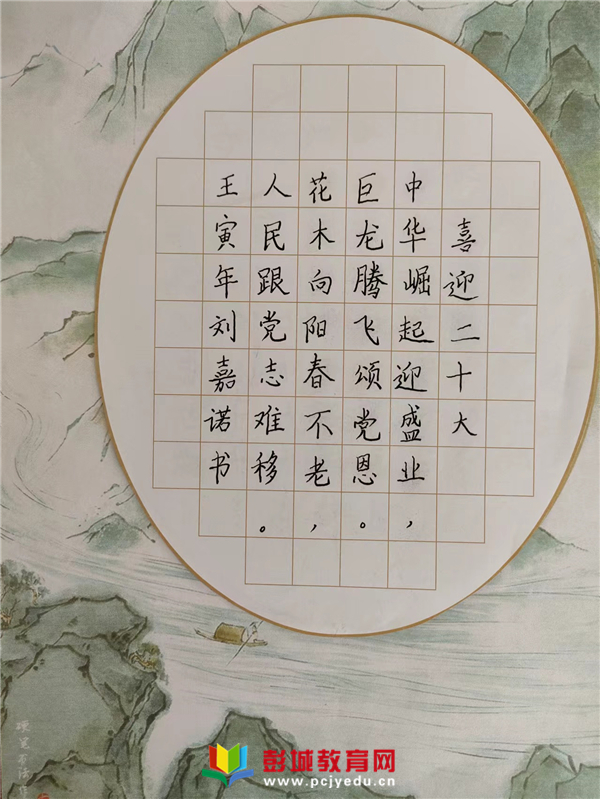 喜迎二十大
中华崛起迎盛业，
巨龙腾飞颂党恩。
花木向阳春不老，
人民跟党志难移。
王寅年刘嘉诺书
硬笔书法
彭城教育网
www.pcjyedu.cn